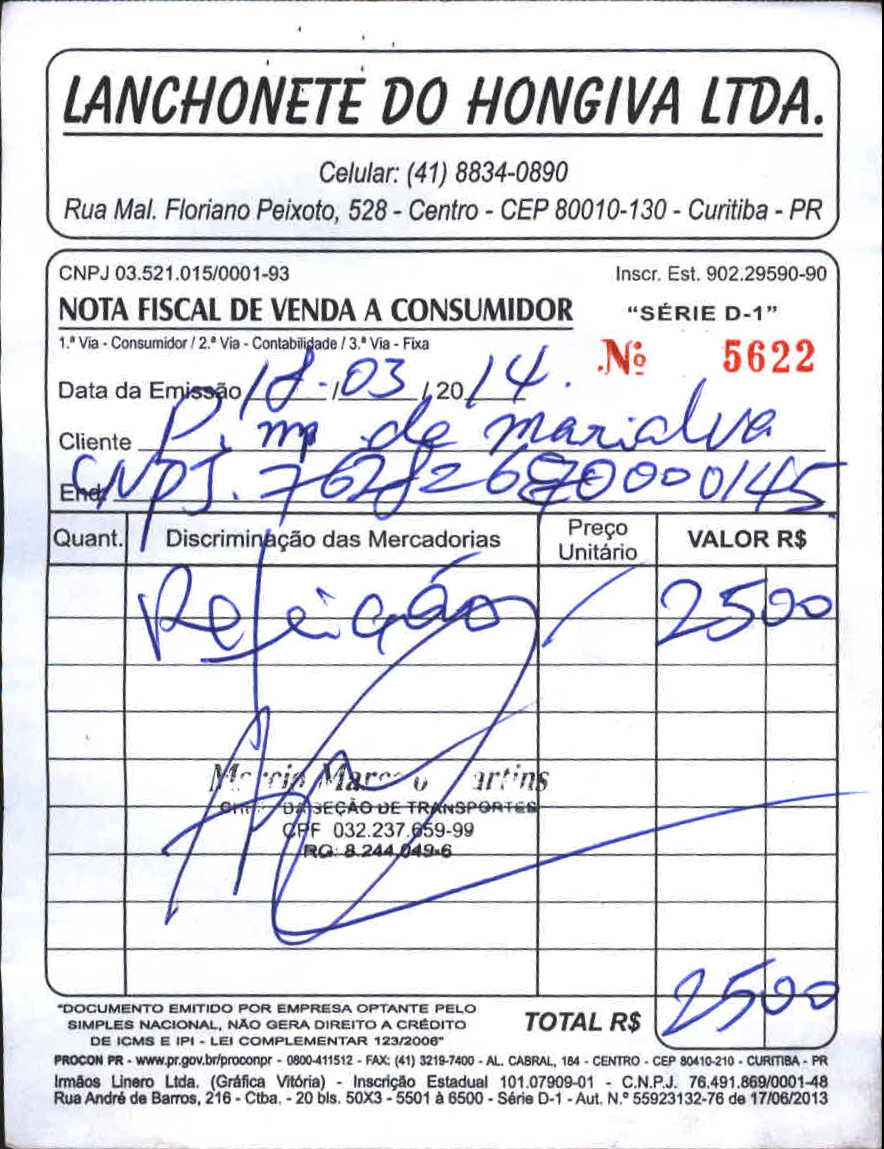 LANCHONETE DO HONGIVA LTDA.
Celular: (41) 8834-0890
Rua Mal. Floriano Peixoto, 528 - Centro - CEP 80010-130 - Curitiba - PR
CNPJ 03.521.015/0001-93 Inscr. Est. 902.29590-90
NOTA FISCAL DE VENDA A CONSUMIDOR "SÉRIE D-1"
1.ª Via - Consumidor / 2.ª Via - Contabilidade / 3.ª Via - Fixa
Nº 5622
Data da Emissão 18.03/2014.
Cliente P. mp de marialva
End. CNPJ. 76282680000145
Quant. Discriminação das Mercadorias Preço Unitário VALOR R$
Refeição 2500
Marcio Marc Martins
CHEFE DA SEÇÃO DE TRANSPORTES
CPF 032.237.659-99
RG: 8.244.049-6
"DOCUMENTO EMITIDO POR EMPRESA OPTANTE PELO
SIMPLES NACIONAL, NÃO GERA DIREITO A CRÉDITO
DE ICMS E IPI - LEI COMPLEMENTAR 123/2006"
TOTAL R$ 2500
PROCON PR - www.pr.gov.br/proconpr - 0800-411512 - FAX: (41) 3219-7400 - AL. CABRAL, 184 - CENTRO - CEP 80410-210 - CURITIBA - PR
Irmãos Linero Ltda. (Gráfica Vitória) - Inscrição Estadual 101.07909-01 - C.N.P.J. 76.491.869/0001-48
Rua André de Barros, 216 - Ctba. - 20 bls. 50X3 - 5501 à 6500 - Série D-1 - Aut. N.º 55923132-76 de 17/06/2013